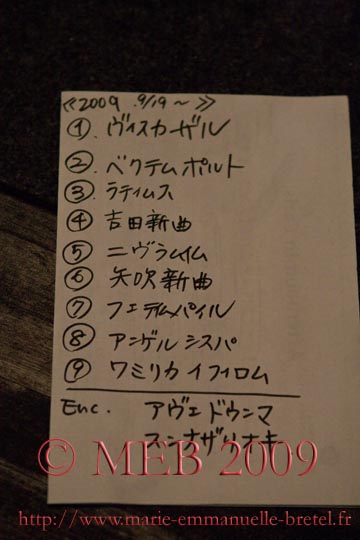 ≪2009 .9/19 ~ ≫
①. ヴィスカーザル
②. ベクテム ポルト
③ ラティムス
④ 吉田新曲
⑤ ニヴラムイム
⑥ 矢吹新曲
⑦ フェティムパイル
⑧ アンゲル シスパ
⑨ ワミリカ イフィロム
Enc. アヴェドウンマ
スンナザリオキ
© MEB 2009
http://www.marie-emmanuelle-bretel.fr